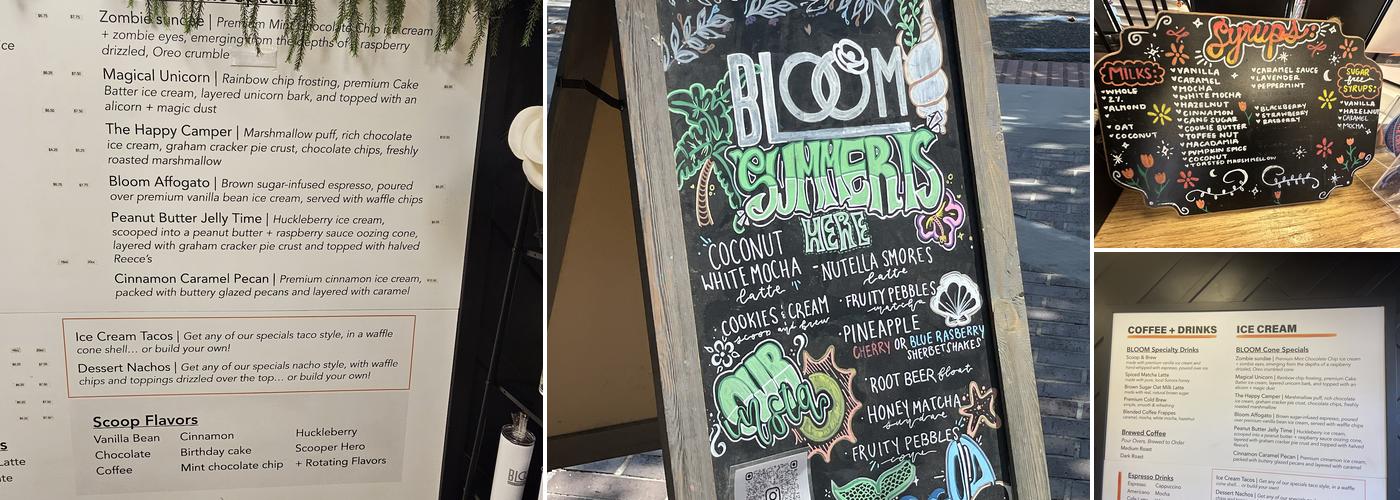 Zombie sundae | Premium Mint Chocolate Chip ice cream
+ zombie eyes, emerging from the depths of a raspberry
drizzled, Oreo crumble
Magical Unicorn | Rainbow chip frosting, premium Cake
Batter ice cream, layered unicorn bark, and topped with an
alicorn + magic dust
The Happy Camper | Marshmallow puff, rich chocolate
ice cream, graham cracker pie crust, chocolate chips, freshly
roasted marshmallow
Bloom Affogato | Brown sugar-infused espresso, poured
over premium vanilla bean ice cream, served with waffle chips
Peanut Butter Jelly Time | Huckleberry ice cream,
scooped into a peanut butter + raspberry sauce oozing cone,
layered with graham cracker pie crust and topped with halved
Reece's
Cinnamon Caramel Pecan | Premium cinnamon ice cream,
packed with buttery glazed pecans and layered with caramel
Ice Cream Tacos | Get any of our specials taco style, in a waffle
cone shell... or build your own!
Dessert Nachos | Get any of our specials nacho style, with waffle
chips and toppings drizzled over the top... or build your own!
Scoop Flavors
Vanilla Bean Cinnamon Huckleberry
Chocolate Birthday cake Scooper Hero
Coffee Mint chocolate chip + Rotating Flavors
BLOOM
SUMMER IS
HERE
COCONUT
WHITE MOCHA
latte
COOKIES & CREAM
scoop and brew
NUTELLA SMORES
latte
FRUITY PEBBLES
PINEAPPLE
CHERRY OR BLUE RASBERRY
SHERBET SHAKES
ROOT BEER float
HONEY MATCHA
FRUITY PEBBLES
Syrups:
MILKS:
WHOLE
2%
ALMOND
OAT
COCONUT
VANILLA
CARAMEL
MOCHA
WHITE MOCHA
HAZELNUT
CINNAMON
CANE SUGAR
COOKIE BUTTER
TOFFEE NUT
MACADAMIA
PUMPKIN SPICE
COCONUT
TOASTED MARSHMELLOW
CARAMEL SAUCE
LAVENDER
PEPPERMINT
BLACKBERRY
STRAWBERRY
RASBERRY
SUGAR
free
SYRUPS:
VANILLA
HAZELNUT
CARAMEL
MOCHA
COFFEE + DRINKS
BLOOM Specialty Drinks
Scoop & Brew
Spiced Matcha Latte
Brown Sugar Oat Milk Latte
Premium Cold Brew
Blended Coffee Frappes
Brewed Coffee
Pour Overs, Brewed to Order
Medium Roast
Dark Roast
Espresso Drinks
Espresso Cappuccino
Americano Mocha
ICE CREAM
BLOOM Cone Specials
Zombie sundae | Premium Mint Chocolate Chip ice cream
+ zombie eyes, emerging from the depths of a raspberry
drizzled, Oreo crumbled cone
Magical Unicorn | Rainbow chip frosting, premium Cake
Batter ice cream, layered unicorn bark, and topped with an
alicorn + magic dust
The Happy Camper | Marshmallow puff, rich chocolate
ice cream, graham cracker pie crust, chocolate chips, freshly
roasted marshmallow
Bloom Affogato | Brown sugar-infused espresso, poured
over premium vanilla bean ice cream, served with waffle chips
Peanut Butter Jelly Time | Huckleberry ice cream,
scooped into a peanut butter + raspberry sauce oozing cone,
layered with graham cracker pie crust and topped with halved
Reece's
Cinnamon Caramel Pecan | Premium cinnamon ice cream,
packed with buttery glazed pecans and layered with caramel
Ice Cream Tacos | Get any of our specials taco style, in a waffle
cone shell... or build your own!
Dessert Nachos | Get any of our specials nacho style, with waffle